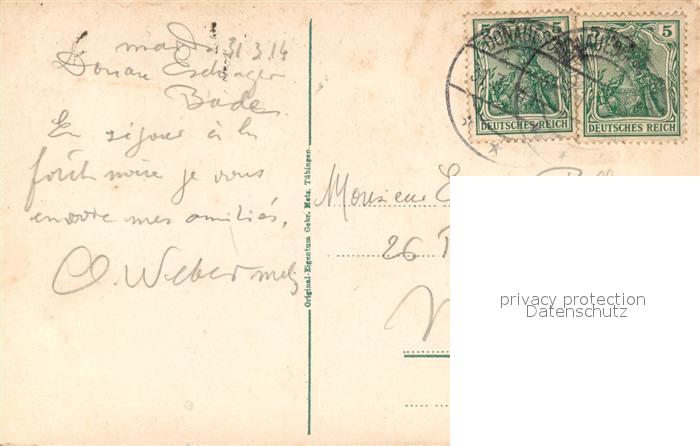 mardi 31.3.14
Donau Eschingen
Baden
En séjour à la
forêt noire je vous
envoie mes amitiés.
Weber Metz
Original-Eigentum Gebr. Metz, Tübingen.
5 5
DONAUESCH
DEUTSCHES REICH
DEUTSCHES REICH
Monsieur
26
privacy protection
Datenschutz